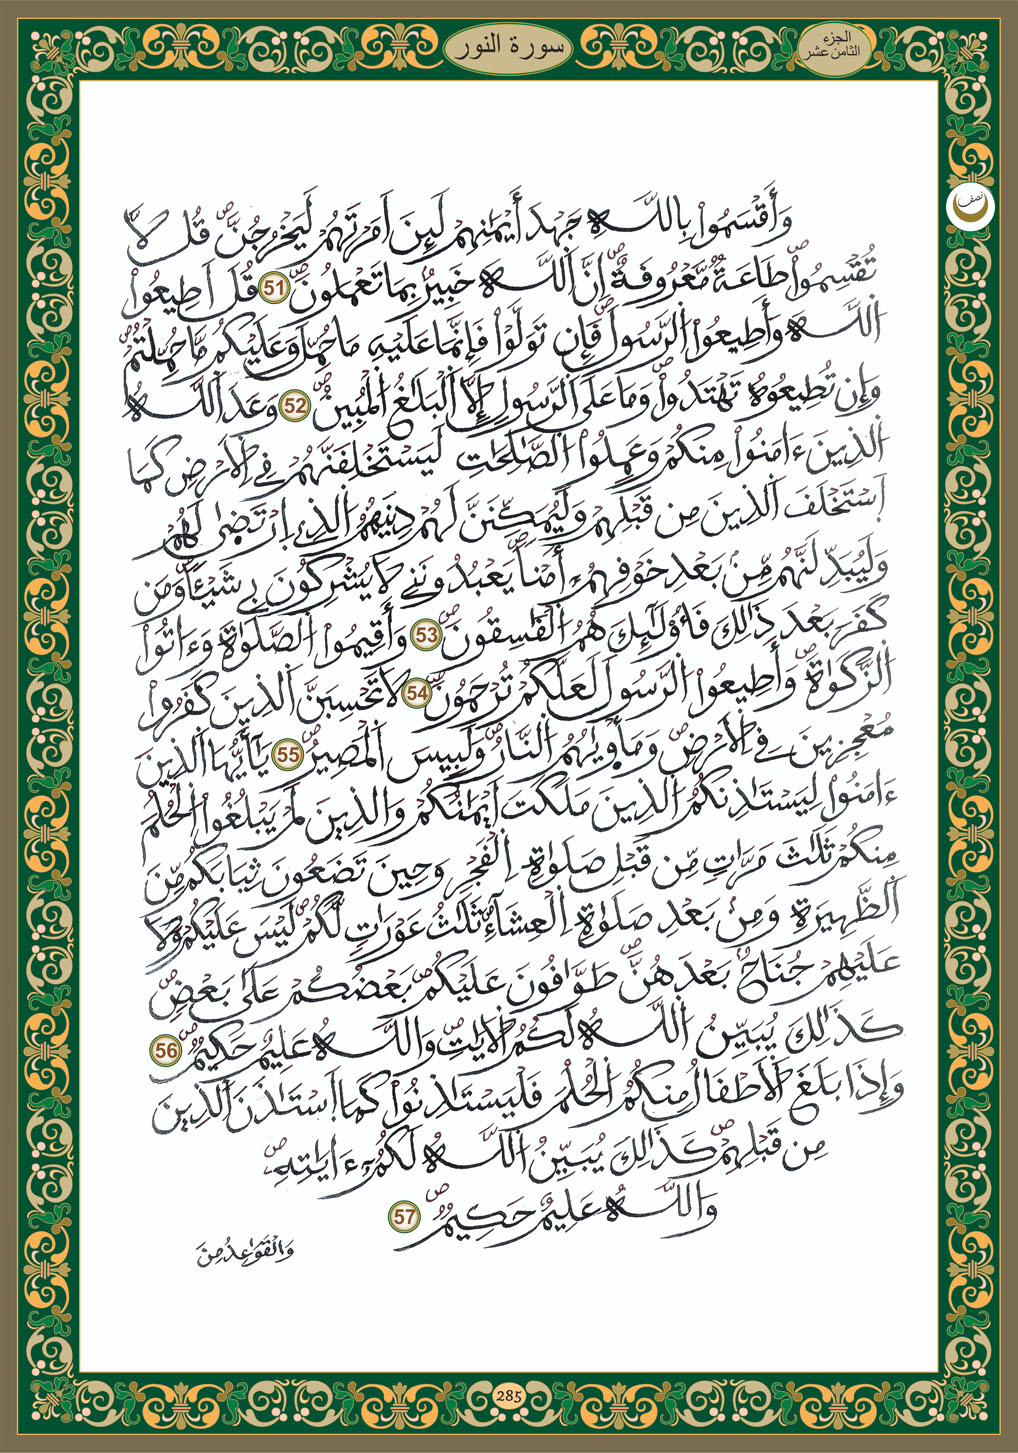 سورة النور
الجزء
الثامن عشر
نصف
وَأَقْسَمُواْ بِاللَّهِ جَهْدَ أَيْمَٰنِهِمْ لَئِنَ اَمَرْتَهُمْ لَيَخْرُجُنَّ ص قُل لَّا
تُقْسِمُواْ ص طَاعَةٌ مَّعْرُوفَةٌ ص اِنَّ اَللَّهَ خَبِيرُۢ بِمَا تَعْمَلُونَ ص 51 قُلَ اَطِيعُواْ
اللَّهَ وَأَطِيعُواْ الرَّسُولَ ص فَإِن تَوَلَّوْاْ فَإِنَّمَا عَلَيْهِ مَا حُمِّلَ وَعَلَيْكُم مَّا حُمِّلْتُمْ ص
وَإِن تُطِيعُوهُ تَهْتَدُواْ ص وَمَا عَلَى الرَّسُولِ إِلَّا اَلْبَلَٰغُ الْمُبِينُ ص 52 وَعَدَ اَللَّهُ
الذِينَ ءَامَنُواْ مِنكُمْ وَعَمِلُواْ الصَّٰلِحَٰتِ لَيَسْتَخْلِفَنَّهُمْ فِے اِلَارْضِ كَمَا
اَسْتَخْلَفَ اَلذِينَ مِن قَبْلِهِمْ وَلَيُمَكِّنَنَّ لَهُمْ دِينَهُمُ الذِے اِرْتَضَىٰ لَهُمْ
وَلَيُبَدِّلَنَّهُم مِّنۢ بَعْدِ خَوْفِهِمُۥٓ أَمْناً ص يَعْبُدُونَنِے لَا يُشْرِكُونَ بِے شَيْـٔاً ص وَمَن
كَفَرَ بَعْدَ ذَٰلِكَ فَأُوْلَٰٓئِكَ هُمُ الْفَٰسِقُونَ ص 53 وَأَقِيمُواْ الصَّلَوٰةَ وَءَاتُواْ
الزَّكَوٰةَ ص وَأَطِيعُواْ الرَّسُولَ لَعَلَّكُمْ تُرْحَمُونَ ص 54 لَا تَحْسِبَنَّ اَلذِينَ كَفَرُواْ
مُعْجِزِينَ فِے اِلَارْضِ ص وَمَأْوَيٰهُمُ النَّارُ ص وَلَبِيسَ اَلْمَصِيرُ ص 55 يَٰٓأَيُّهَا الذِينَ
ءَامَنُواْ لِيَسْتَٰذِنكُمُ الذِينَ مَلَكَتَ اَيْمَٰنُكُمْ وَالذِينَ لَمْ يَبْلُغُواْ الْحُلُمَ
مِنكُمْ ثَلَٰثَ مَرَّٰتٖ مِّن قَبْلِ صَلَوٰةِ اِلْفَجْرِ وَحِينَ تَضَعُونَ ثِيَابَكُم مِّنَ
اَلظَّهِيرَةِ وَمِنۢ بَعْدِ صَلَوٰةِ اِلْعِشَآءِ ص ثَلَٰثُ عَوْرَٰتٍ لَّكُمْ ص لَيْسَ عَلَيْكُمْ وَلَا
عَلَيْهِمْ جُنَاحُۢ بَعْدَهُنَّ ص طَوَّٰفُونَ عَلَيْكُم ص بَعْضُكُمْ عَلَىٰ بَعْضٍ ص
كَذَٰلِكَ يُبَيِّنُ اُللَّهُ لَكُمُ الَايَٰتِ ص وَاللَّهُ عَلِيمٌ حَكِيمٌ ص 56
وَإِذَا بَلَغَ اَلَاطْفَالُ مِنكُمُ الْحُلُمَ فَلْيَسْتَٰذِنُواْ كَمَا اَسْتَٰذَنَ اَلذِينَ
مِن قَبْلِهِمْ ص كَذَٰلِكَ يُبَيِّنُ اُللَّهُ لَكُمُۥٓ ءَايَٰتِهِۦ ص
وَاللَّهُ عَلِيمٌ حَكِيمٌ ص 57
وَالْقَوَٰعِدُ مِنَ
285